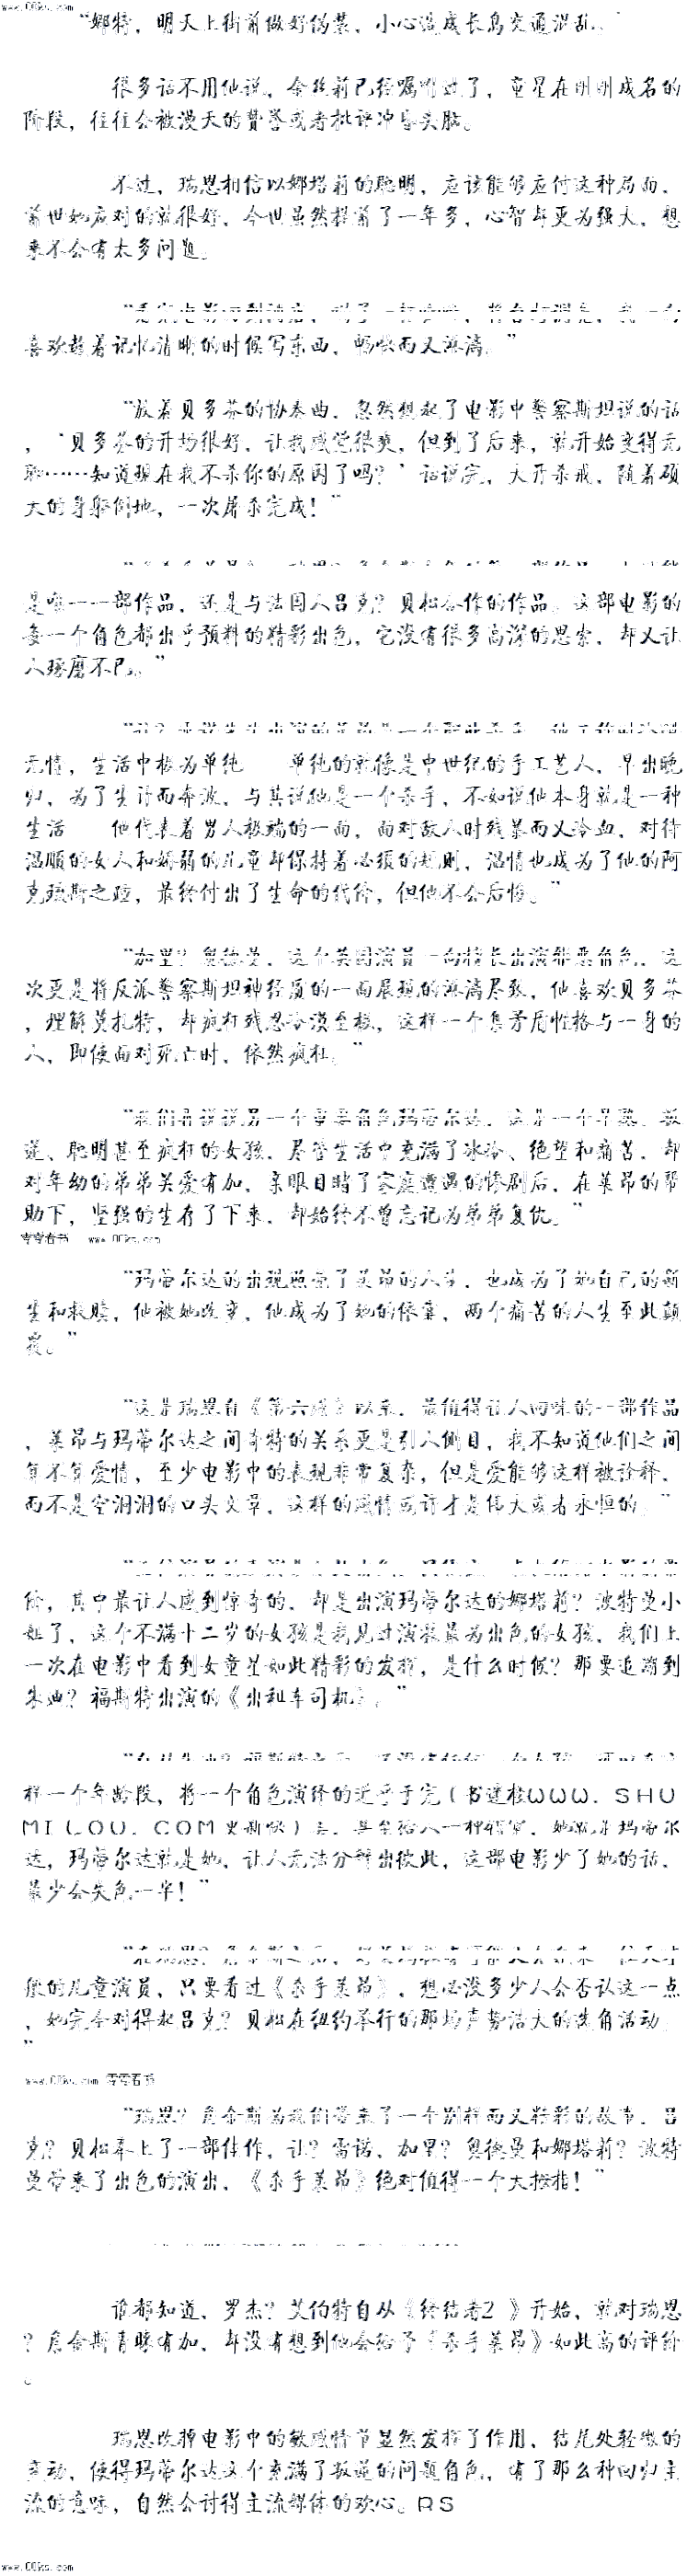 www.00ks.com
“娜特，明天上街前做好伪装，小心造成长岛交通混乱。”
很多话不用他说，余丝莉已经嘱咐过了，童星在刚刚成名的
阶段，往往会被漫天的赞誉或者批评冲昏头脑。
不过，瑞恩相信以娜塔莉的聪明，应该能够应付这种局面，
前世她应对的就很好，今世虽然提前了一年多，心智却更为强大，想
来不会有太多问题。
喜欢趁着记忆清晰的时候写东西，畅快而又淋漓。”
“放着贝多芬的协奏曲，忽然想起了电影中警察斯坦说的话
，‘贝多芬的开场很好，让我感觉很爽，但到了后来，就开始变得无
聊……知道现在我不杀你的原因了吗？’话说完，大开杀戒，随着硕
大的身躯倒地，一次屠杀完成！”
是唯一一部作品，还是与法国人吕克？贝松合作的作品。这部电影的
每一个角色都出乎预料的精彩出色，它没有很多高深的思索，却又让
人琢磨不已。”
无情，生活中极为单纯 单纯的就像是中世纪的手工艺人，早出晚
归，为了生计而奔波，与其说他是一个杀手，不如说他本身就是一种
生活 他代表着男人极端的一面，面对敌人时残暴而又冷血，对待
温顺的女人和娇弱的儿童却保持着必须的规则，温情也成为了他的阿
克琉斯之踵，最终付出了生命的代价，但他不会后悔。”
“加里？奥德曼，这个英国演员一向擅长出演邪恶角色，这
次更是将反派警察斯坦神经质的一面展现的淋漓尽致，他喜欢贝多芬
，理解莫扎特，却疯狂残忍冷漠至极，这样一个集矛盾性格与一身的
人，即使面对死亡时，依然疯狂。”
“我们再说说另一个重要角色玛蒂尔达，这是一个早熟、叛
逆、聪明甚至疯狂的女孩，尽管生活中充满了冰冷、绝望和痛苦，却
对年幼的弟弟关爱有加，亲眼目睹了家庭遭遇的惨剧后，在莱昂的帮
助下，坚强的生存了下来，却始终不曾忘记为弟弟复仇。”
零零看书 www.00ks.com
“玛蒂尔达的出现照亮了莱昂的人生，也成为了她自己的新
生和救赎，他被她改变，他成为了她的依靠，两个痛苦的人生至此颠
覆。”
“这是瑞恩自《第六感》以来，最值得让人回味的一部作品
，莱昂与玛蒂尔达之间奇特的关系更是引人侧目，我不知道他们之间
算不算爱情，至少电影中的表现非常复杂，但是爱能够这样被诠释，
而不是空洞洞的口头文章，这样的感情或许才是伟大或者永恒的。”
价，其中最让人感到惊奇的，却是出演玛蒂尔达的娜塔莉？波特曼小
姐了，这个不满十二岁的女孩是我见过演技最为出色的女孩，我们上
一次在电影中看到女童星如此精彩的发挥，是什么时候？那要追溯到
朱迪？福斯特出演的《出租车司机》。”
样一个年龄段，将一个角色演绎的近乎于完（书迷楼ＷＷＷ．ＳＨＵ
ＭＩＬＯＵ．ＣＯＭ更新快）美，甚至给人一种错觉，她就是玛蒂尔
达，玛蒂尔达就是她，让人无法分辨出彼此，这部电影少了她的话，
最少会失色一半！”
般的儿童演员，只要看过《杀手莱昂》，想必没多少人会否认这一点
，她完全对得起吕克？贝松在纽约举行的那场声势浩大的选角活动。
”
www.00ks.com 零零看书
“瑞恩？詹金斯为我们带来了一个别样而又精彩的故事，吕
克？贝松奉上了一部佳作，让？雷诺、加里？奥德曼和娜塔莉？波特
曼带来了出色的演出，《杀手莱昂》绝对值得一个大拇指！”
谁都知道，罗杰？艾伯特自从《终结者2 》开始，就对瑞恩
？詹金斯青睐有加，却没有想到他会给予《杀手莱昂》如此高的评价
。
瑞恩改掉电影中的敏感情节显然发挥了作用，结尾处轻微的
变动，使得玛蒂尔达这个充满了叛逆的问题角色，有了那么种回归主
流的意味，自然会讨得主流媒体的欢心。ＲＳ
www.00ks.com